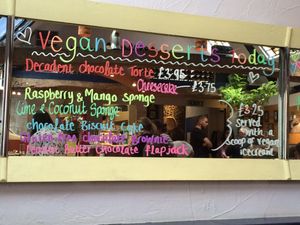 Vegan Desserts Today
Decadent chocolate Torte £3.95
Cheesecake £3.75
Raspberry & Mango Sponge
Lime & Coconut Sponge
chocolate Biscuit Cake
Chocolate Brownie
Peanut Butter Chocolate flapjack
£3.25
Served
with a
scoop of vegan
icecream